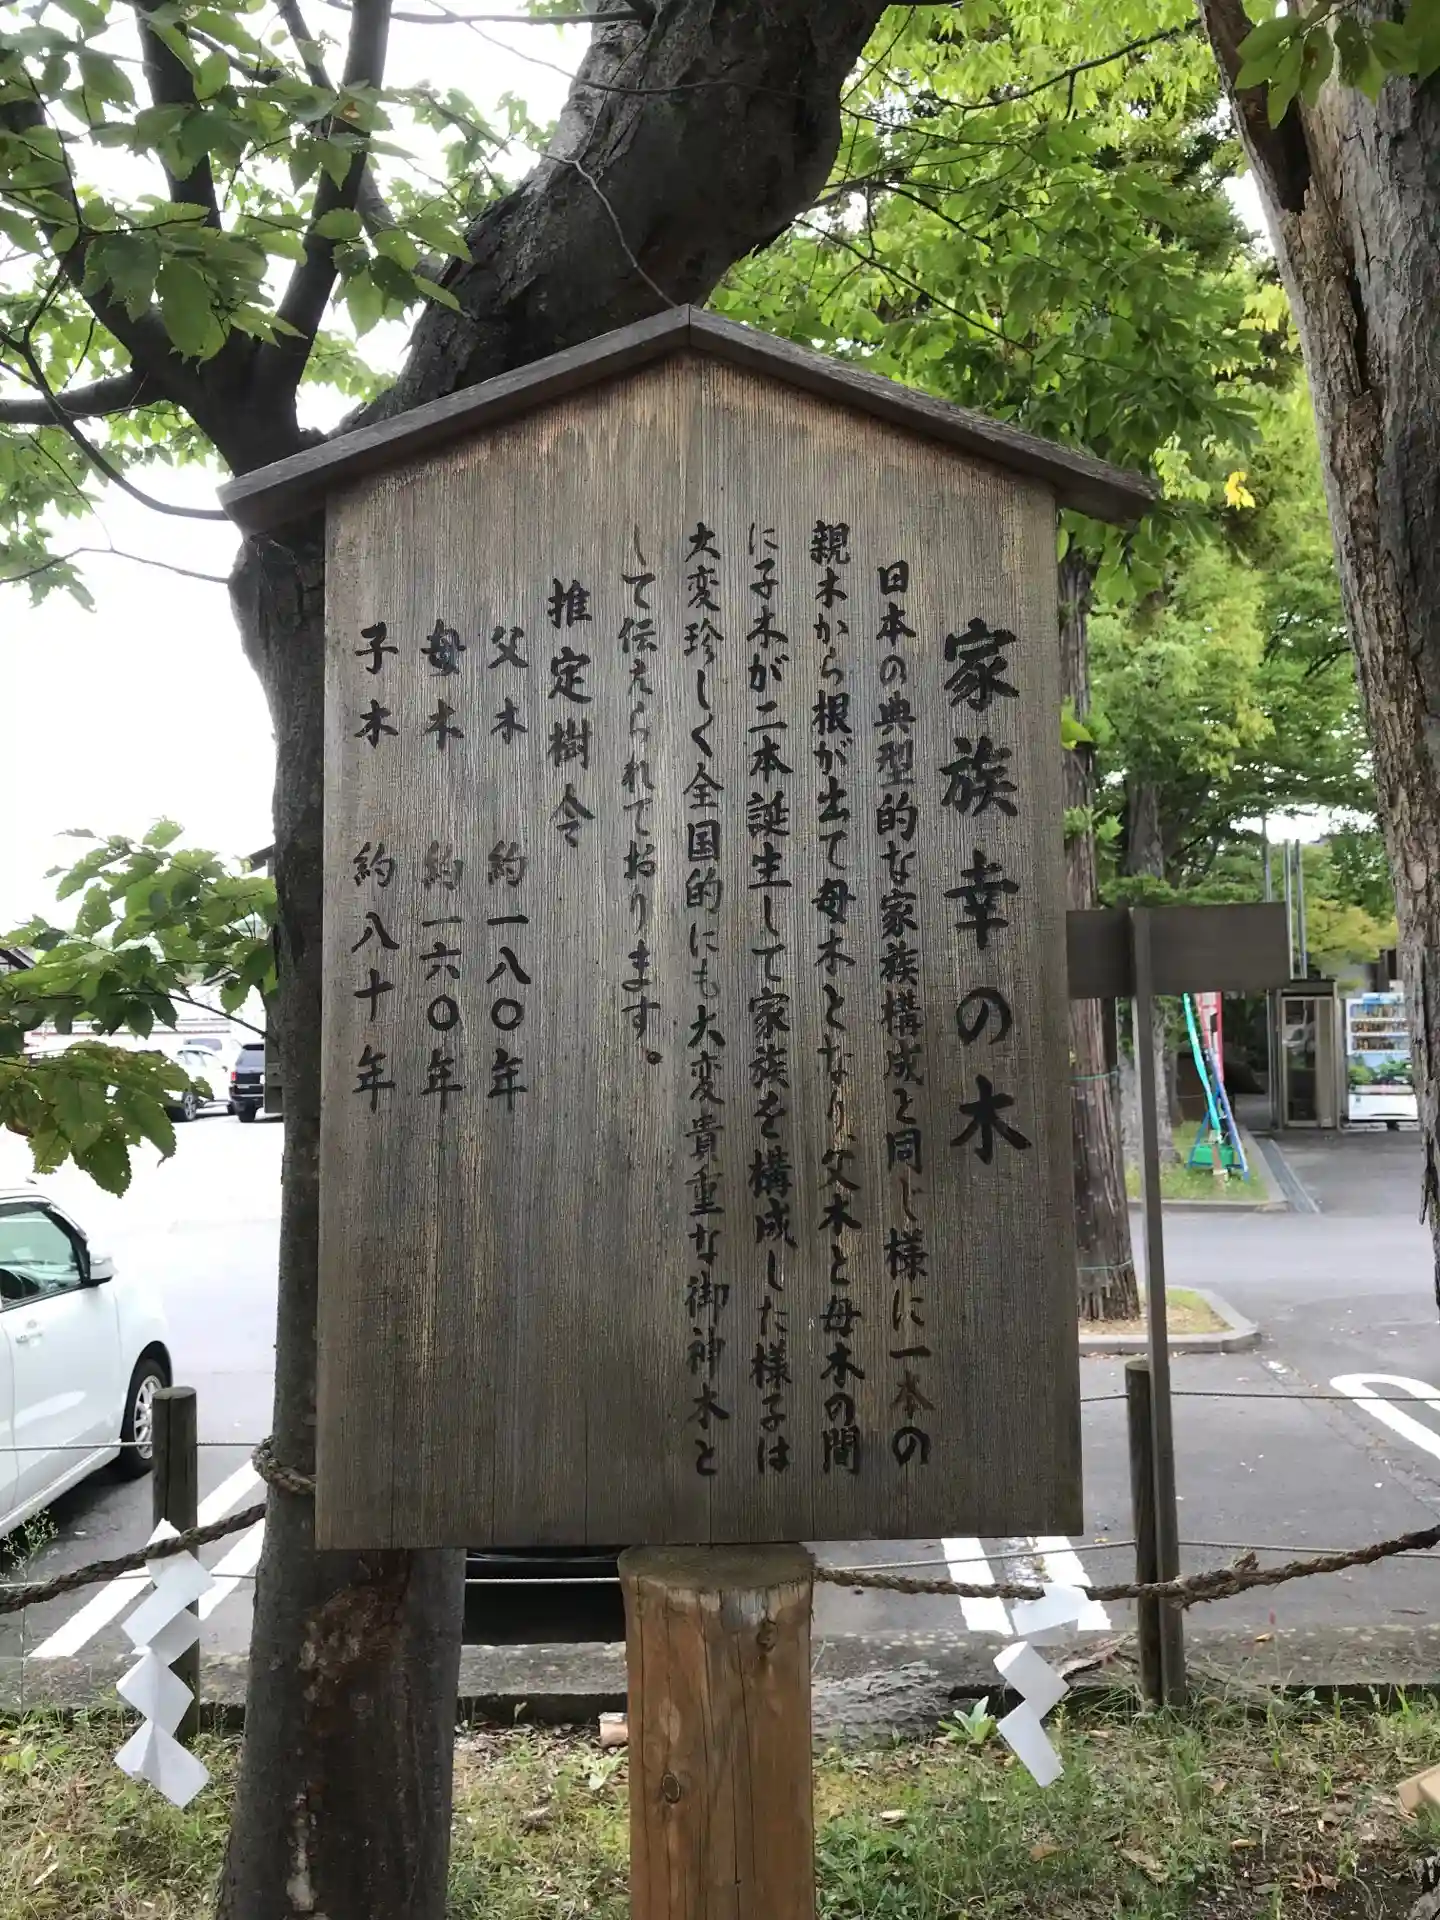 家族幸の木
日本の典型的な家族構成と同じ様に一本の
親木から根が出て母木となり、父木と母木の間
に子木が二本誕生して家族を構成した様子は
大変珍しく全国的にも大変貴重な御神木と
して伝えられております。
推定樹令
父木 約一八〇年
母木 約一六〇年
子木 約八十年